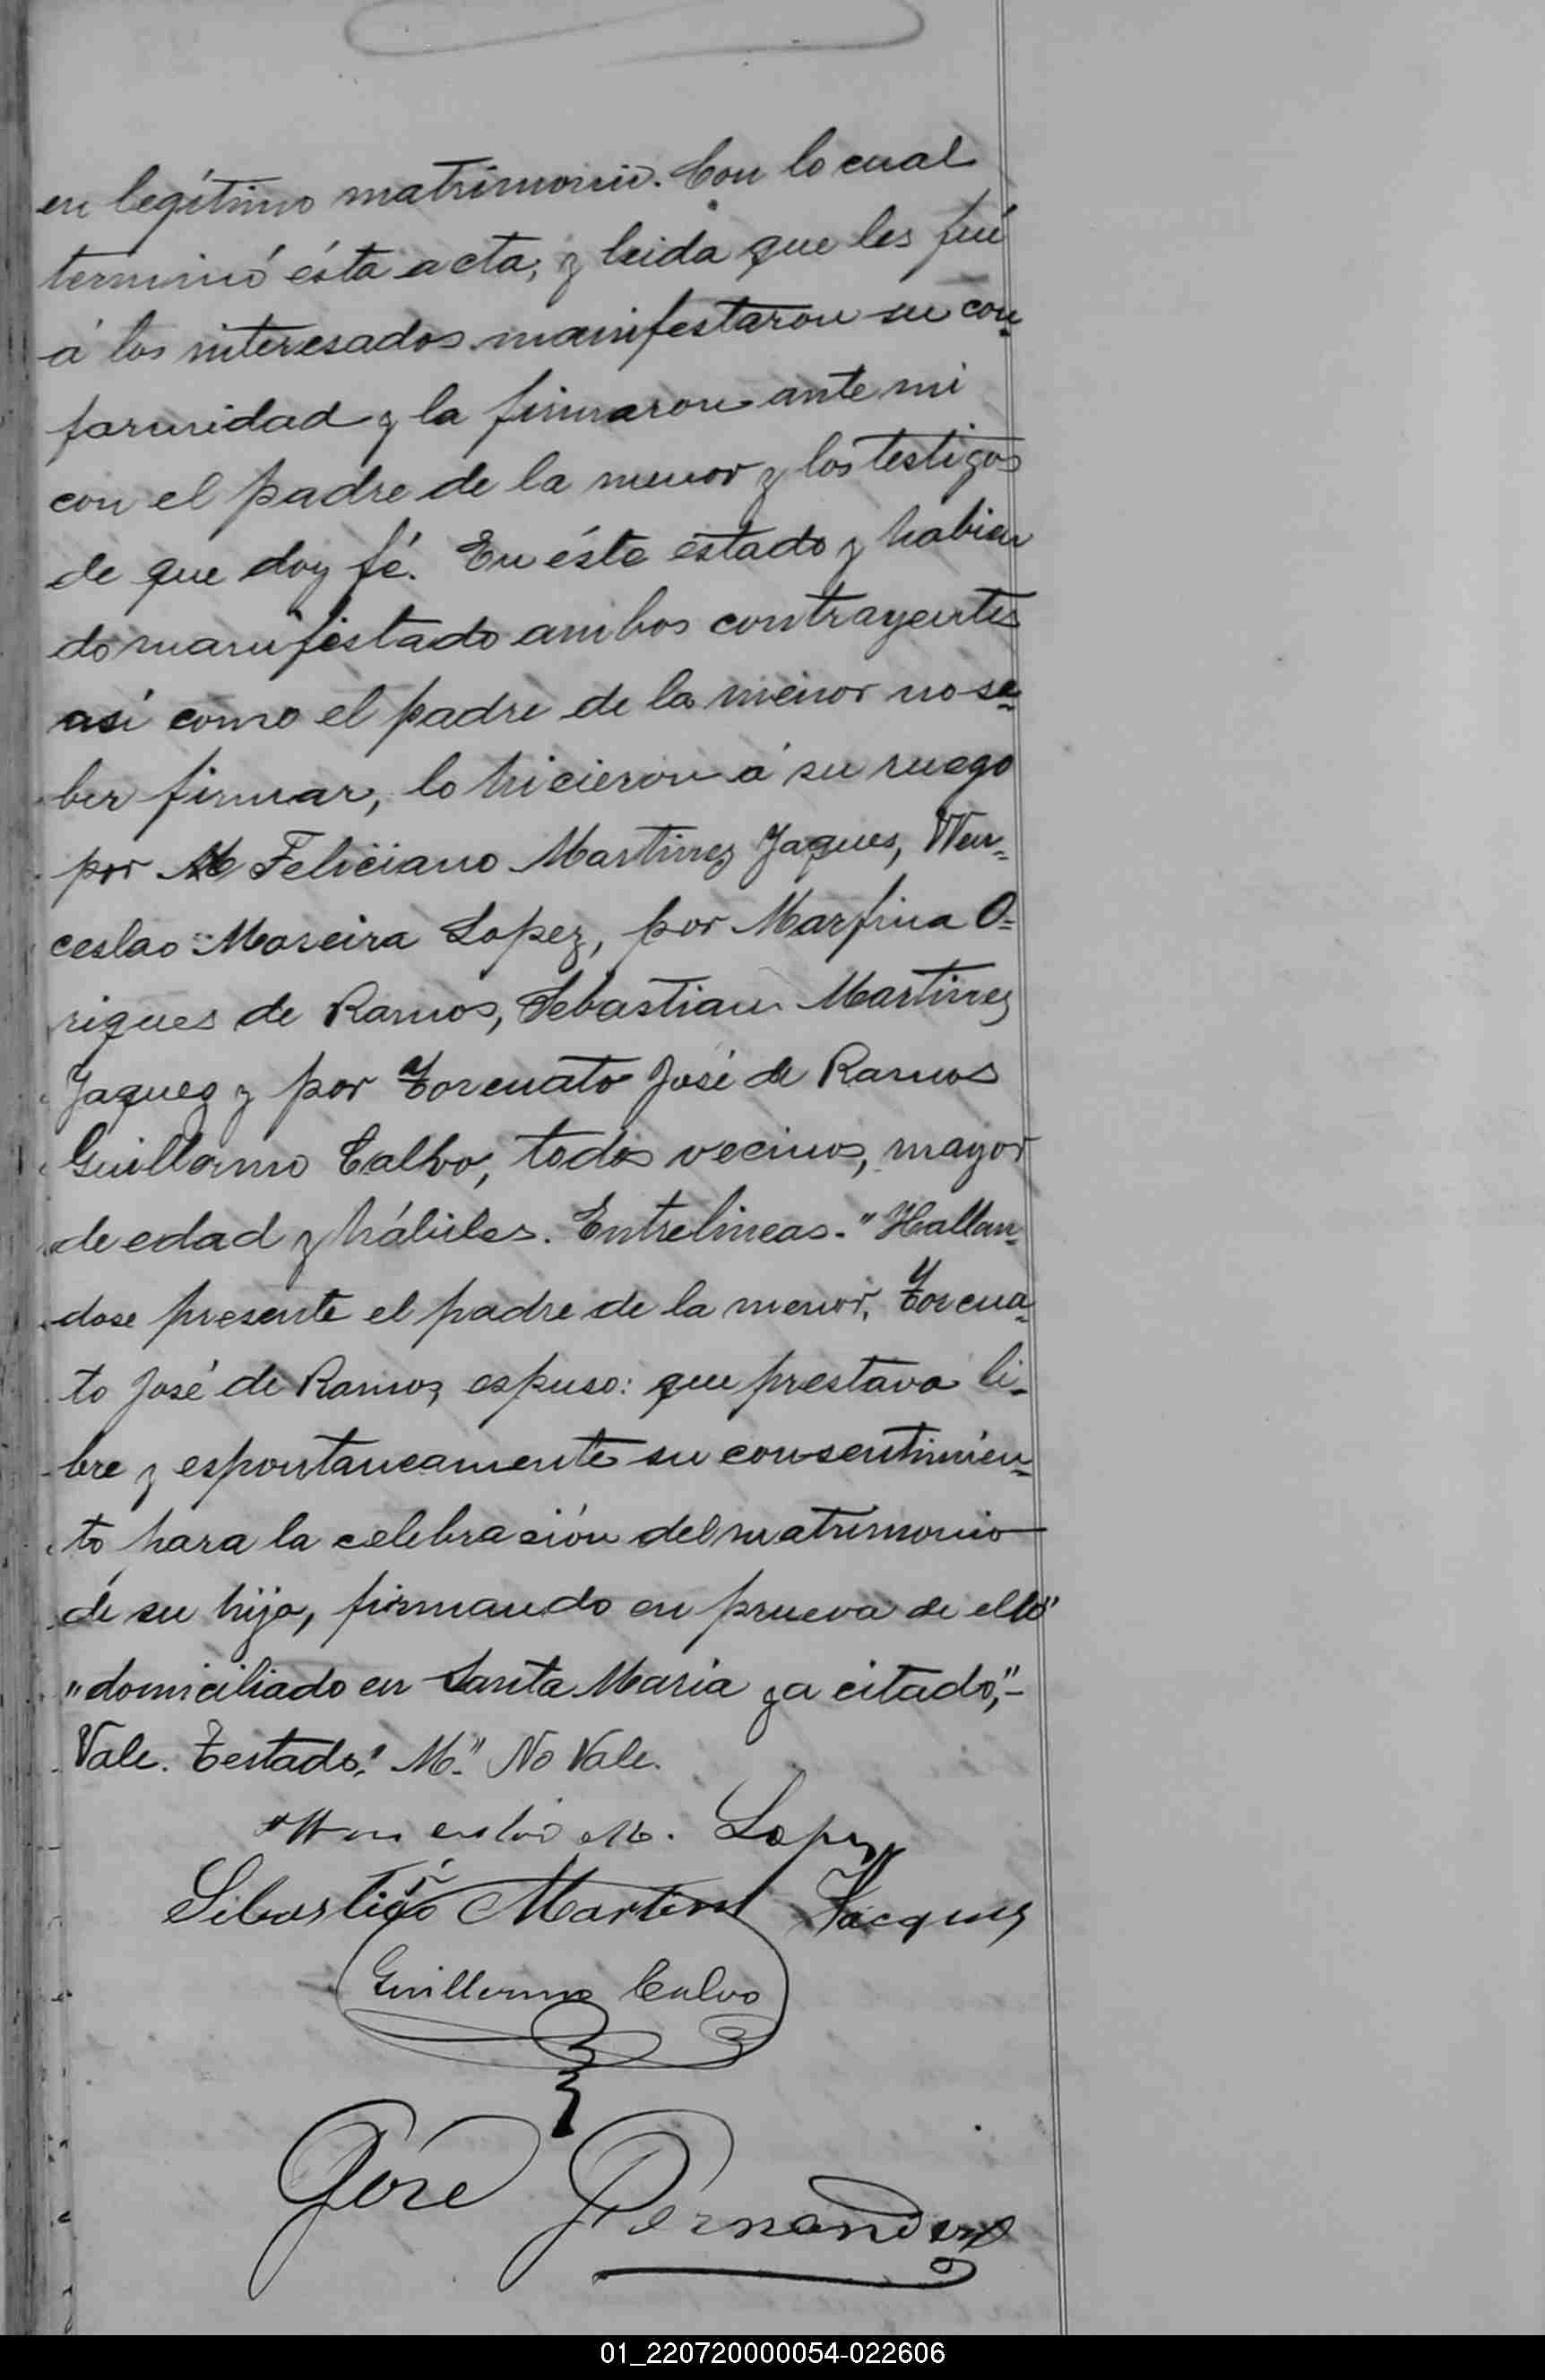 en legítimo matrimonio. Con lo cual
terminó ésta acta, y leida que les fué
á los interesados manifestaron su con=
formidad y la firmaron ante mi
con el padre de la menor y los testigos
de que doy fé. En éste estado y habien
do manifestado ambos contrayentes
asi como el padre de la menor no sa=
ber firmar, lo hicieron á su ruego
por M Feliciano Martinez Jaques, Wen=
ceslao Moreira Lopez, por Marfina O=
rigues de Ramos, Sebastian Martinez
Jaquez y por Torcuato José de Ramos
Guillermo Calvo, todos vecinos, mayor
de edad y hábiles. Entrelineas. "Hallan=
dose presente el padre de la menor, Torcua=
to José de Ramos, espuso: que prestava li=
bre y espontaneamente su consentimien=
to para la celebrasión del matrimonio
de su hija, firmando en prueva de ello"
"domiciliado en Santa Maria ya citado,"-
Vale. Testado: "M." No Vale.
M. Lopez
Sebastião Martinez Jacques
Guillermo Calvo
José Fernandez
01_220720000054-022606